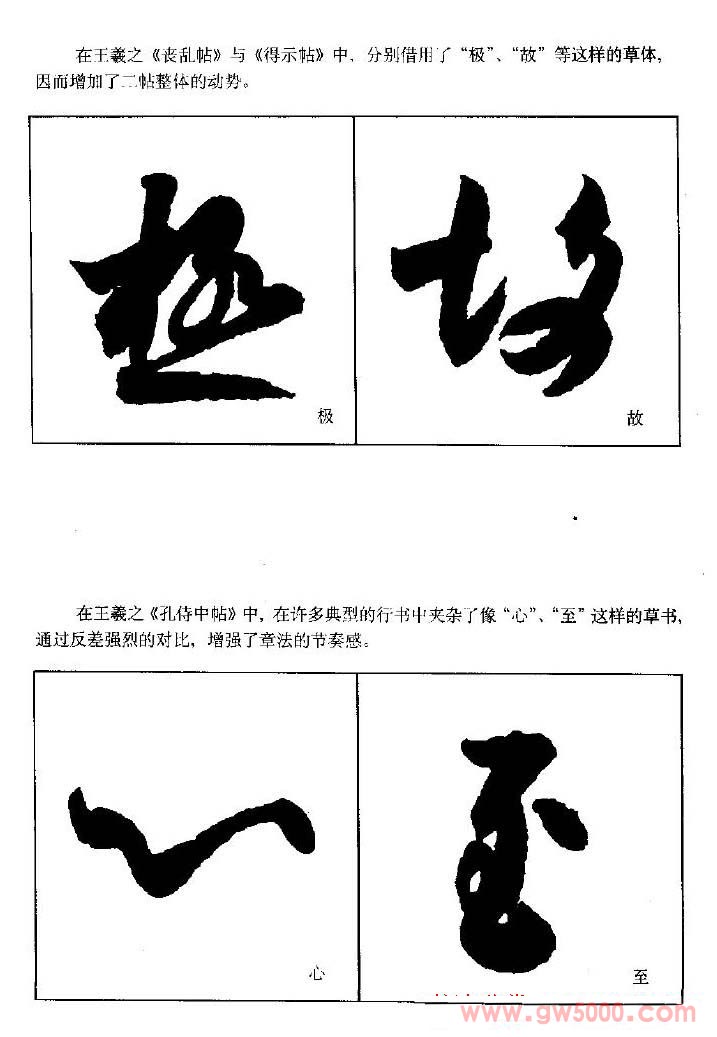 在王羲之《丧乱帖》与《得示帖》中，分别借用了“极”、“故”等这样的草体，
因而增加了二帖整体的动势。
極 故
极 故
在王羲之《孔侍中帖》中，在许多典型的行书中夹杂了像“心”、“至”这样的草书，
通过反差强烈的对比，增强了章法的节奏感。
心 至
心 至
www.gw5000.com